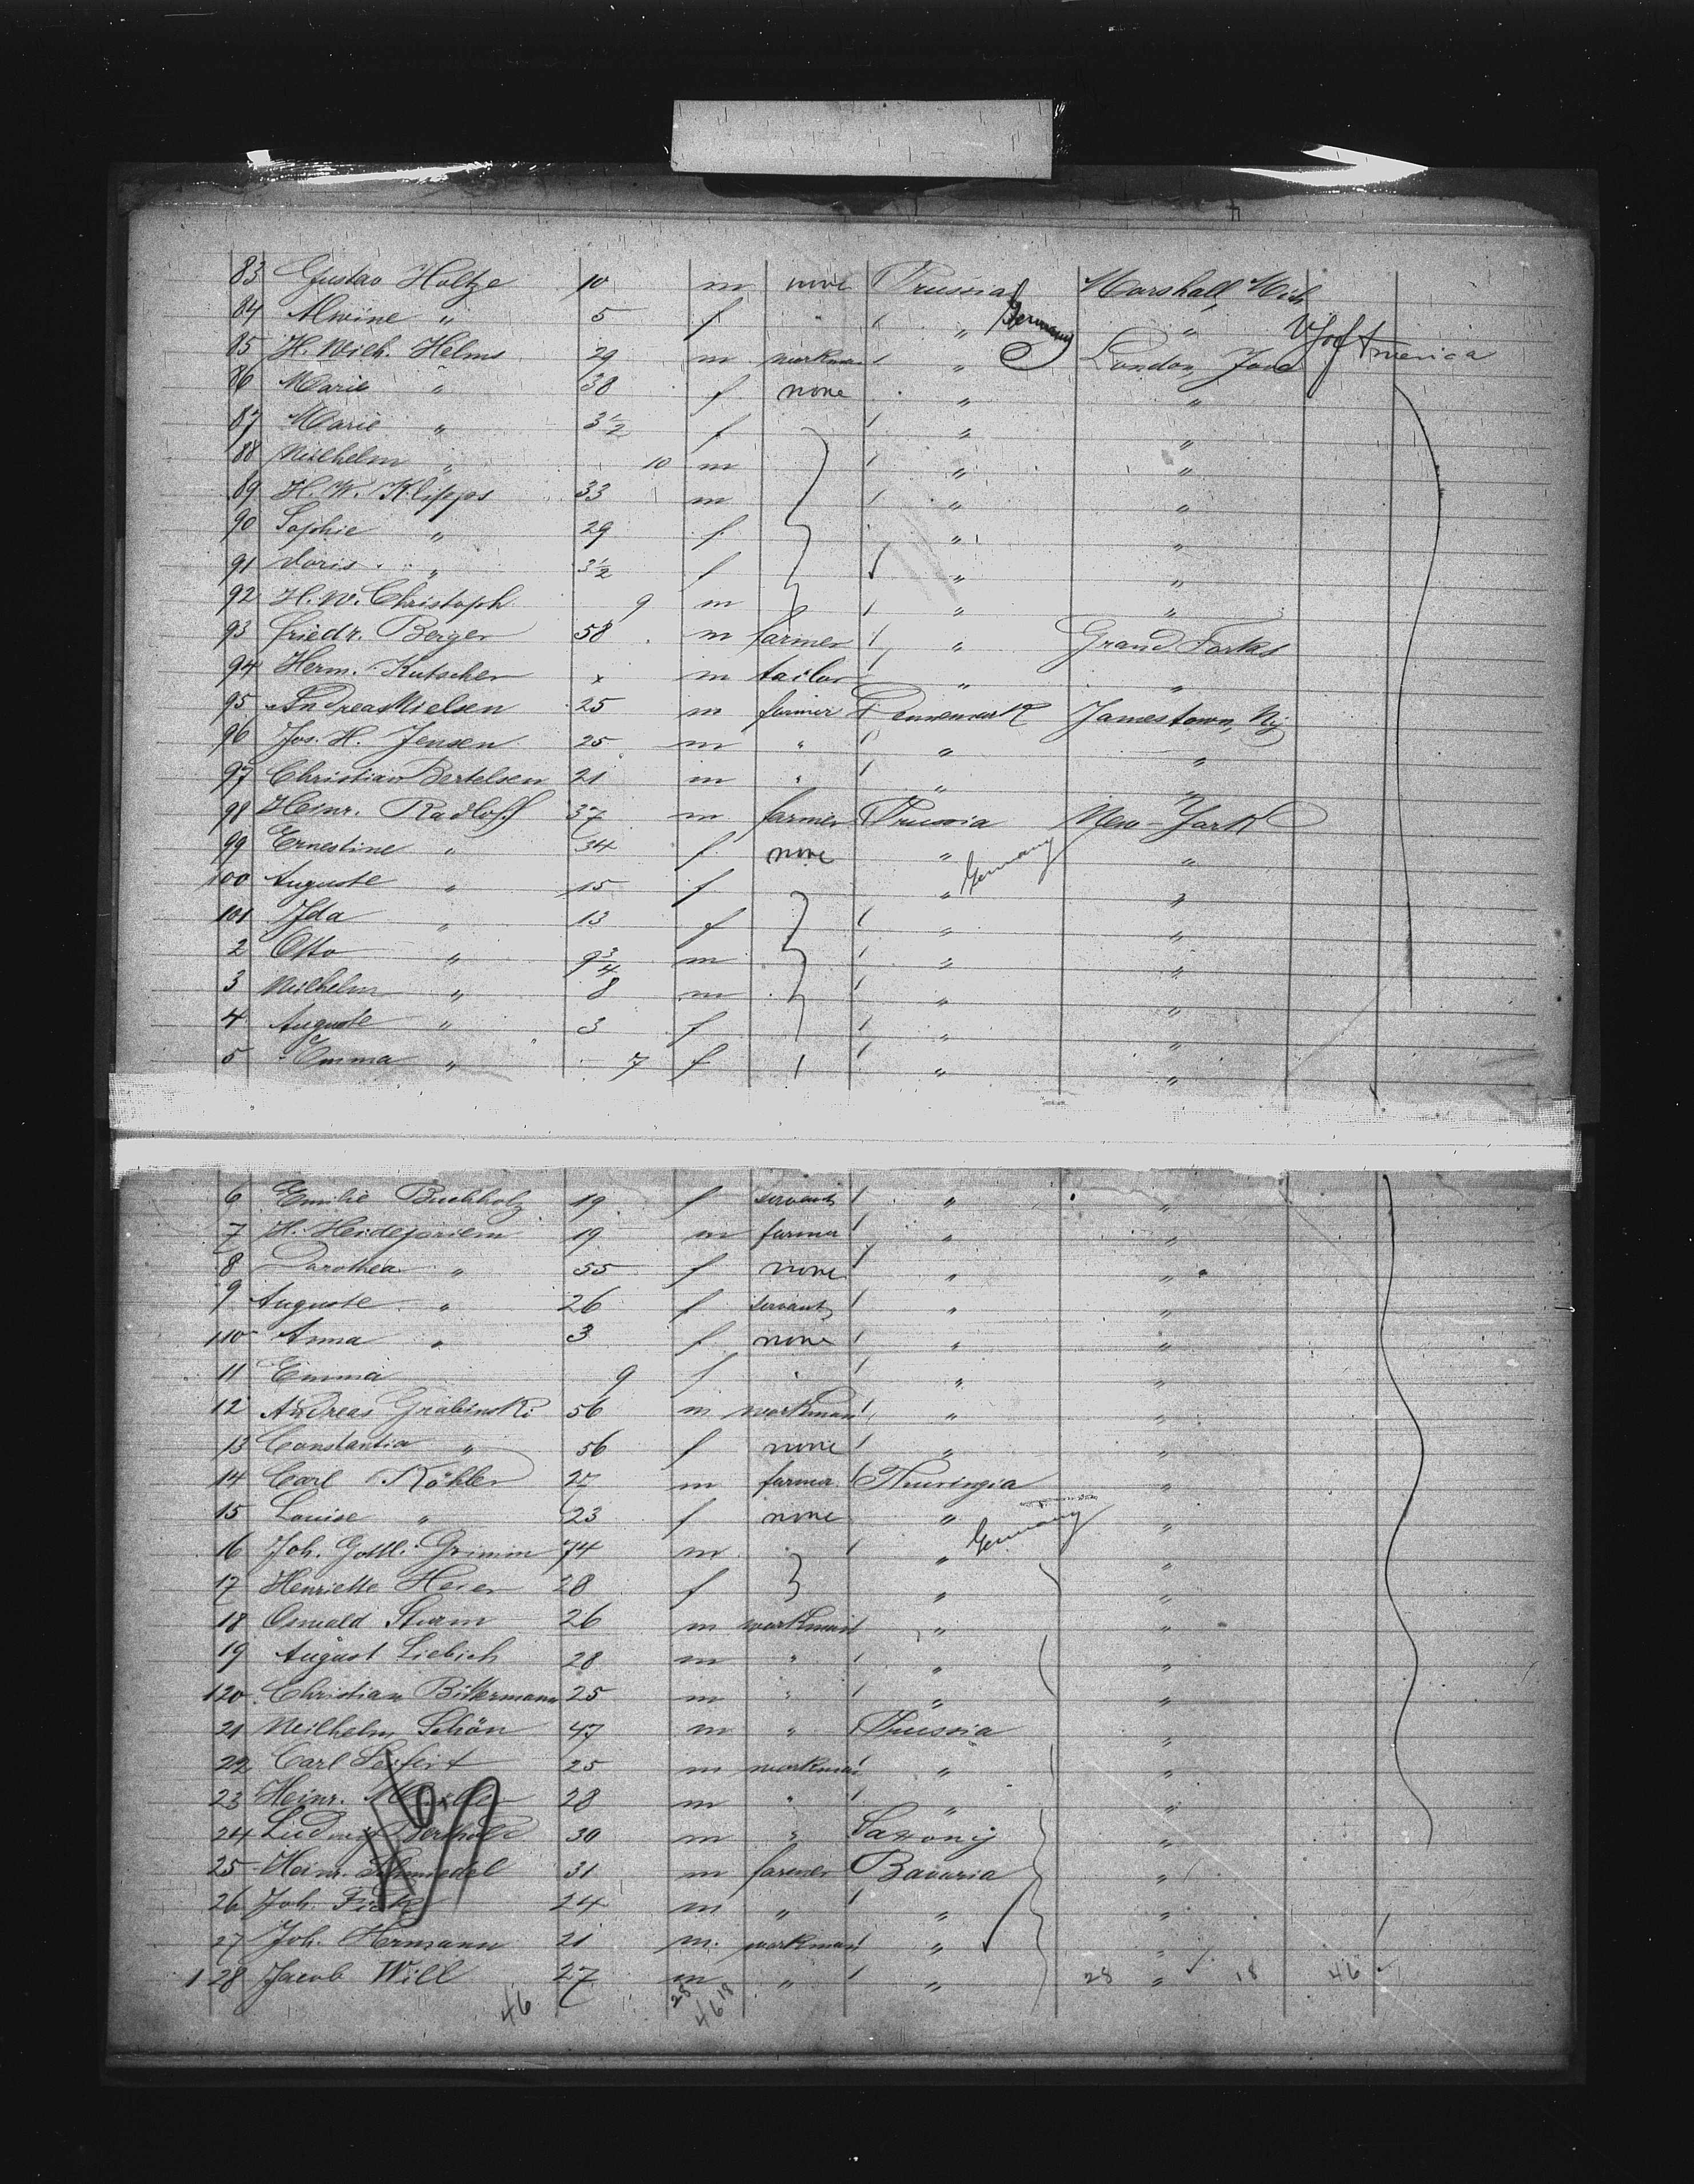 83 Gustav Holtze 10 m none Prussia Marshall, Mich
84 Alwine " 5 f " " Germany " U S of America
85 H. Wilh. Helms 29 m workman " London, Jowa
86 Marie " 30 f none " "
87 Marie " 3½ f " "
88 Wilhelm " 10 m " "
89 H. W. Klipps 33 m " "
90 Sophie " 29 f " "
91 Doris " 3½ f " "
92 H. W. Christoph 9 m " "
93 Friedr. Berger 58 m farmer " Grand Forks
94 Herm. Kutscher x m tailor " "
95 Andreas Nielsen 25 m farmer Dennemark Jamestown, Ny
96 Jos. H. Jensen 25 m " " "
97 Christian Bertelsen 21 m " " "
98 Heinr. Radloff 37 m farmer Prussia New-York
99 Ernestine " 34 f none " "
100 Auguste " 15 f " Germany "
101 Ida " 13 f " "
2 Otto " 9¾ m " "
3 Wilhelm " 8 m " "
4 Auguste " 3 f " "
5 Emma " 7 f " "
6 Emilie Buchholz 19 f servant " "
7 H. Heidepriem 19 m farmer " "
8 Dorothea " 55 f none " "
9 Auguste " 26 f servant " "
110 Anna " 3 f none " "
11 Emma 9 f " "
12 Andreas Grabinski 56 m workman " "
13 Constantia " 56 f none " "
14 Carl Köhler 27 m farmer Thuringia "
15 Louise " 23 f none " Germany "
16 Joh. Gottl. Grimm 74 m " "
17 Henriette 28 f " "
18 Oswald Sturm 26 m workman " "
19 August Liebich 28 m " " "
120 Christian Bittermann 25 m " " "
21 Wilhelm Schön 47 m " Prussia "
22 Carl Seifert 25 m workman " "
23 Heinr. 28 m " " "
24 Ludwig Berthold 30 m " Saxony "
25 Heinr. Schmiedel 31 m farmer Bavaria "
26 Joh. 24 m " " "
27 Joh. Hermann 21 m. workman " "
128 Jacob Will 27 m " " 28 " 18 46
46 28 18
46